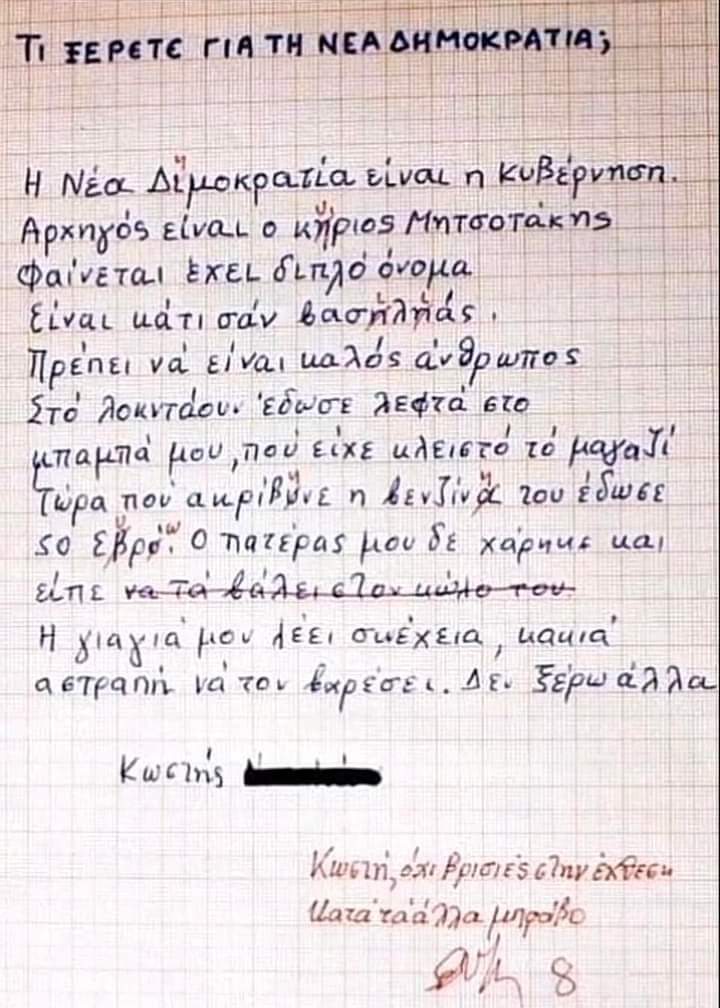 ΤΙ ΞΕΡΕΤΕ ΓΙΑ ΤΗ ΝΕΑ ΔΗΜΟΚΡΑΤΙΑ;
Η Νέα Δϊμοκρατία είναι η κυβέρνηση.
Αρχηγός είναι ο κήριος Μητσοτάκης
Φαίνεται έχει διπλό όνομα
Είναι κάτι σάν βασηληάς.
Πρέπει νά είναι καλός άνθρωπος
Στό λοκντάουν έδωσε λεφτά στο
μπαμπά μου, πού είχε κλειστό τό μαγαζί
Τώρα πού ακρίβυνε η βενζίνα του έδωσε
50 εβρό. Ο πατέρας μου δε χάρηκε και
είπε να τά βάλει στον κώλο του
Η γιαγιά μου λέει συνέχεια, κακιά
αστραπή νά τον βαρέσει. Δεν ξέρω άλλα
Κωστής
Κωστή, όχι βρισιές στην έκθεση
Κατά τά άλλα μπράβο
8